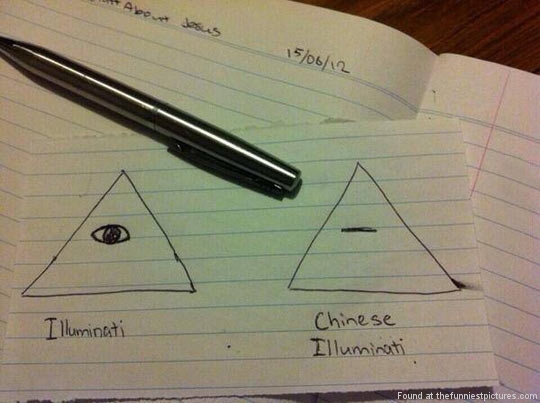 About Jesus
15/06/12
Illuminati
Chinese
Illuminati
Found at thefunniestpictures.com